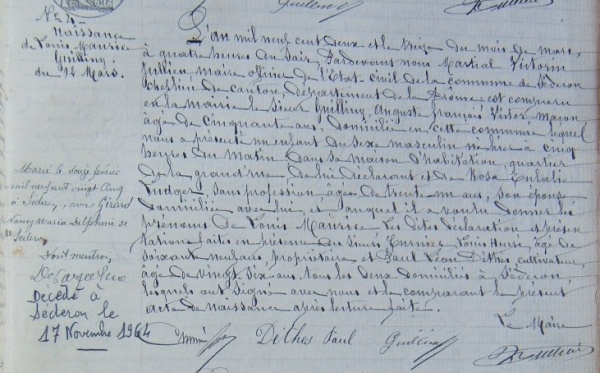 Guilliny
N° 2
Naissance
de Louis Maurice
Guilliny
du 12 Mars.
L'an mil neuf cent deux et le treize du mois de mars
à quatre heures du soir, Pardevant nous Martial Victorin
Jullien, maire officier de l'Etat civil de la commune de Séderon
chef lieu de canton, département de la Drôme est comparu
en la mairie le sieur Guilliny, Auguste François Victor, maçon
âgé de cinquante ans, domicilié en cette commune lequel
nous a présenté un enfant du sexe masculin né hier à cinq
heures du matin dans sa maison d'habitation, quartier
de la grand'rue de lui déclarant et de Rosa Eulalie
sans profession, âgée de trente un ans, son épouse
domiciliée avec lui, et auquel il a voulu donner les
prénoms de Louis Maurice Les dites déclaration et présen
tation faites en présence de Sieurs Louis Henri, âgé de
soixante neuf ans, propriétaire et Paul Léon Dethès, cultivateur,
âgé de vingt six ans, tous les deux domiciliés à Séderon
lesquels ont signé avec nous et le comparant le présent
acte de naissance après lecture faite.
Le Maire
Dethès Paul Guilliny
Marié le douze février
mil neuf cent vingt cinq
à Séderon, avec Girard
Fanny Maria Delphine de
Séderon
Dont mention,
Décédé à
Séderon le
17 Novembre 1964